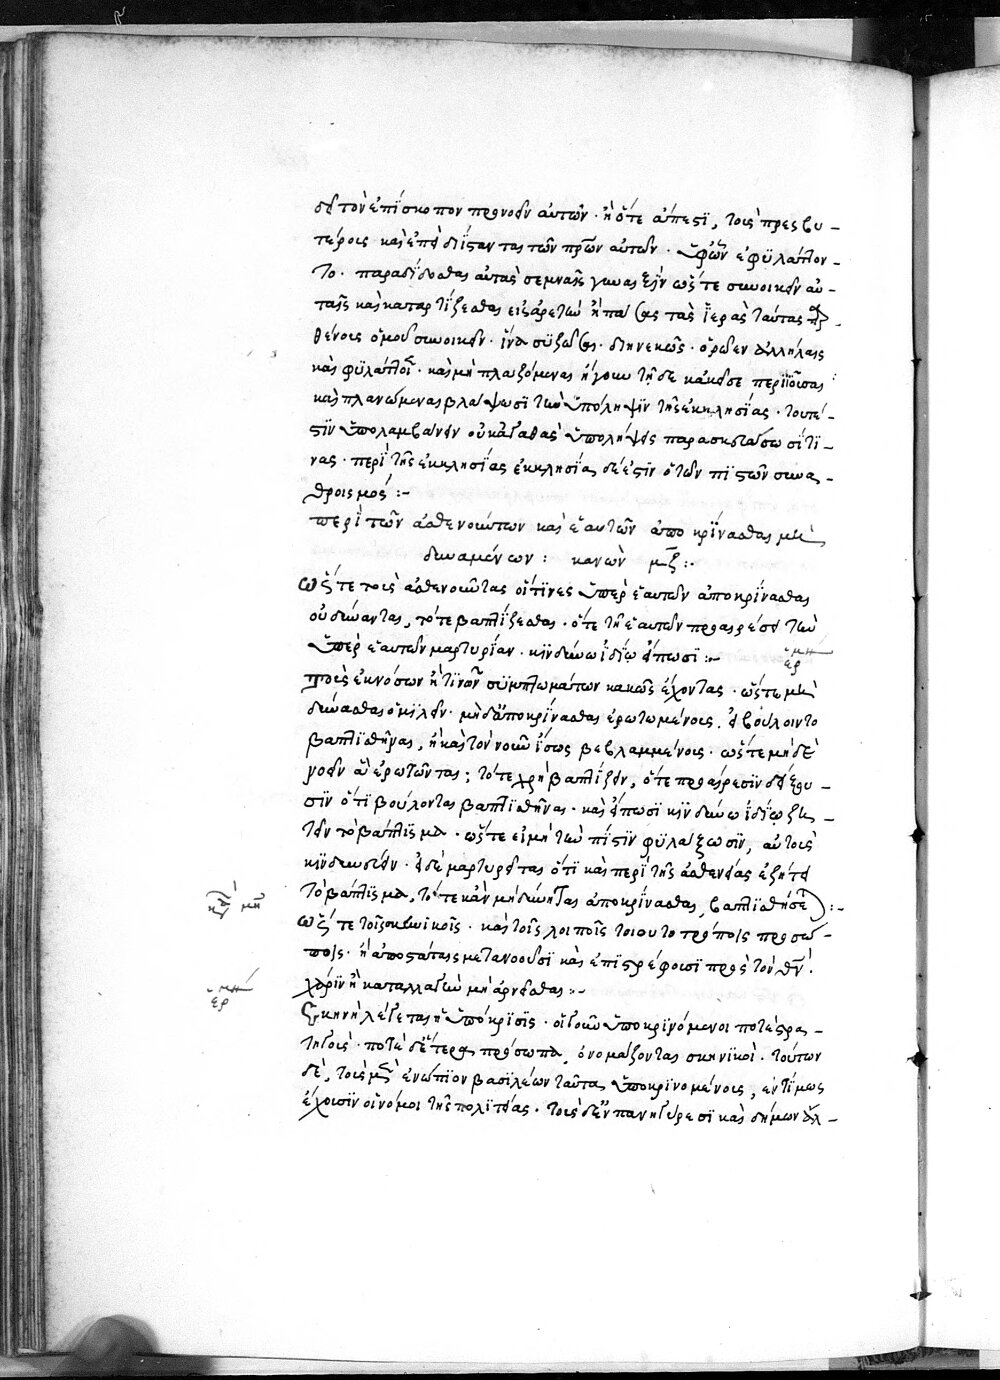 δεῖ τὸν ἐπίσκοπον προνοεῖν αὐτῶν· ἢ ὅτε ἄπεστι, τοὺς πρεσβυ-
τέρους καὶ
το· παραδίδοσθαι αὐτὰς σεμναῖς γυναιξὶν ὥστε συνοικεῖν αὐ-
ταῖς καὶ καταρτίζεσθαι εἰς ἀρετὴν ἢ τὰς ἱερὰς ταύτας παρ-
θένους ὁμοῦ συνοικεῖν· ἵνα συζῶσι διηνεκῶς· ὁρῶεν ἀλλήλας
καὶ φυλάττοι· καὶ μὴ πλαζόμεναι ἤγουν τῇδε κἀκεῖσε περιϊοῦσαι
καὶ πλανώμεναι βλάψωσι τὴν ὑπόληψιν τῆς ἐκκλησίας· τουτέ-
στιν ὑπολαμβάνειν οὐκ ἀγαθὰς ὑπολήψεις παρασκευάσωσί τι-
νας· περὶ τῆς ἐκκλησίας ἐκκλησία δέ ἐστιν ὁ τῶν πιστῶν συνα-
θροισμός:-
περὶ τῶν ἀσθενούντων καὶ ἑαυτῶν ἀποκρίνασθαι μὴ
δυναμένων: κανὼν μζ:-
ὥστε τοὺς ἀσθενοῦντας οἵτινες ὑπὲρ ἑαυτῶν ἀποκρίνασθαι
οὐ δύνανται, τότε βαπτίζεσθαι· ὅτε τῇ ἑαυτῶν προαιρέσει τὴν
ὑπὲρ ἑαυτῶν μαρτυρίαν· κινδύνῳ ἰδίῳ εἴπωσι:-
ἑρμη
τοὺς ἐκ νόσων ἤ τινων συμπτωμάτων κακῶς ἔχοντας· ὥστε μὴ
δύνασθαι ὁμιλεῖν· μὴ δ' ἀποκρίνασθαι ἐρωτωμένους, εἰ βούλοιντο
βαπτισθῆναι, ἢ καὶ τὸν νοῦν ἴσως βεβλαμμένους· ὥστε μηδὲ
νοεῖν ἃ ἐρωτῶνται; τότε χρὴ βαπτίζειν, ὅτε προαίρεσιν δείξου-
σιν ὅτι βούλονται βαπτισθῆναι· καὶ εἴπωσι κινδύνῳ ἰδίῳ ζη-
τεῖν τὸ βάπτισμα· ὥστε εἰ μὴ τὴν πίστιν φυλάξωσιν, αὐτοὺς
κινδυνεύειν· εἰ δὲ μαρτυρεῖται ὅτι καὶ περὶ τῆς ἀσθενείας ἐξήτει
τὸ βάπτισμα, τότε κἂν μὴ δύνηται ἀποκρίνασθαι, βαπτισθήσεται:-
μη
ὥστε τοῖς σκηνικοῖς· καὶ τοῖς λοιποῖς τοιούτο τρόποις προσώ-
ποις· ἢ ἀποστάταις μετανοοῦσι καὶ ἐπιστρέφουσι πρὸς τὸν θν.
χάριν ἢ καταλλαγὴν μὴ ἀρνεῖσθαι:-
ἑρμη
Σκηνὴ λέγεται ἡ ὑπόκρισις· οἱ γοῦν ὑποκρινόμενοι ποτὲ στρα-
τηγούς· ποτὲ δὲ ἕτερα πρόσωπα, ὀνομάζονται σκηνικοί· τούτων
δὲ, τοὺς μὲν ἐνώπιον βασιλέων ταῦτα ὑποκρινομένους, ἐντίμως
ἔχουσιν οἱ νόμοι τῆς πολιτείας· τοὺς δ' ἐν πανηγύρεσι καὶ δήμων ἀλ-